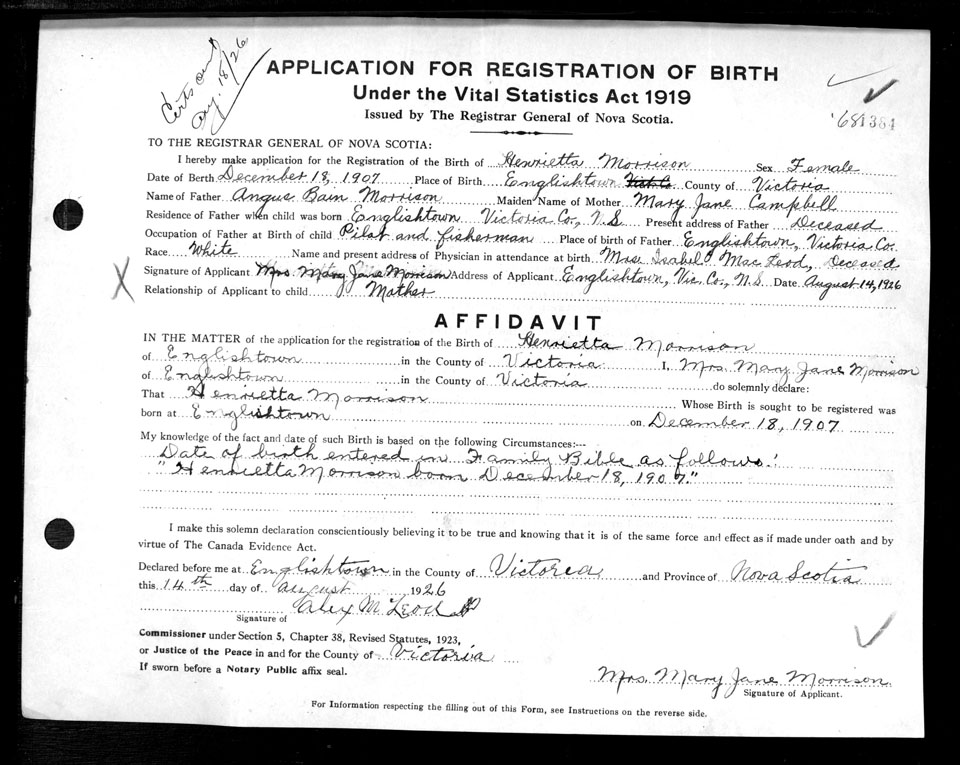 Certs sent
Aug. 18/26
APPLICATION FOR REGISTRATION OF BIRTH
Under the Vital Statistics Act 1919
Issued by The Registrar General of Nova Scotia.
TO THE REGISTRAR GENERAL OF NOVA SCOTIA:
I hereby make application for the Registration of the Birth of Henrietta Morrison Sex Female
Date of Berth December 18, 1907 Place of Birth Englishtown Vict. Co. County of Victoria
Name of Father Angus Bain Morrison Maiden Name of Mother Mary Jane Campbell
Residence of Father when child was born Englishtown Victoria Co., N.S. Present address of Father Deceased
Occupation of Father at Birth of child Pilot and fisherman Place of birth of Father Englishtown, Victoria Co.
Race White Name and present address of Physician in attendance at birth Mrs. Isabel MacLeod, Deceased
X Signature of Applicant Mrs Mary Jane Morrison Address of Applicant Englishtown, Vic. Co., N.S. Date August 14, 1926
Relationship of Applicant to child Mother
AFFIDAVIT
IN THE MATTER of the application for the registration of the Birth of Henrietta Morrison
of Englishtown in the County of Victoria I, Mrs. Mary Jane Morrison
of Englishtown in the County of Victoria do solemnly declare:
That Henrietta Morrison Whose Birth is sought to be registered was
born at Englishtown on December 18, 1907
My knowledge of the fact and date of such Birth is based on the following Circumstances:---
Date of birth entered in Family Bible as follows:
"Henrietta Morrison born December 18, 1907."
I make this solemn declaration conscientiously believing it to be true and knowing that it is of the same force and effect as if made under oath and by
virtue of The Canada Evidence Act.
Declared before me at Englishtown in the County of Victoria and Province of Nova Scotia
this 14th day of August 1926
Alex McLeod JP
Signature of
Commissioner under Section 5, Chapter 38, Revised Statutes, 1923,
or Justice of the Peace in and for the County of Victoria
If sworn before a Notary Public affix seal.
Mrs. Mary Jane Morrison
Signature of Applicant.
For Information respecting the filling out of this Form, see Instructions on the reverse side.